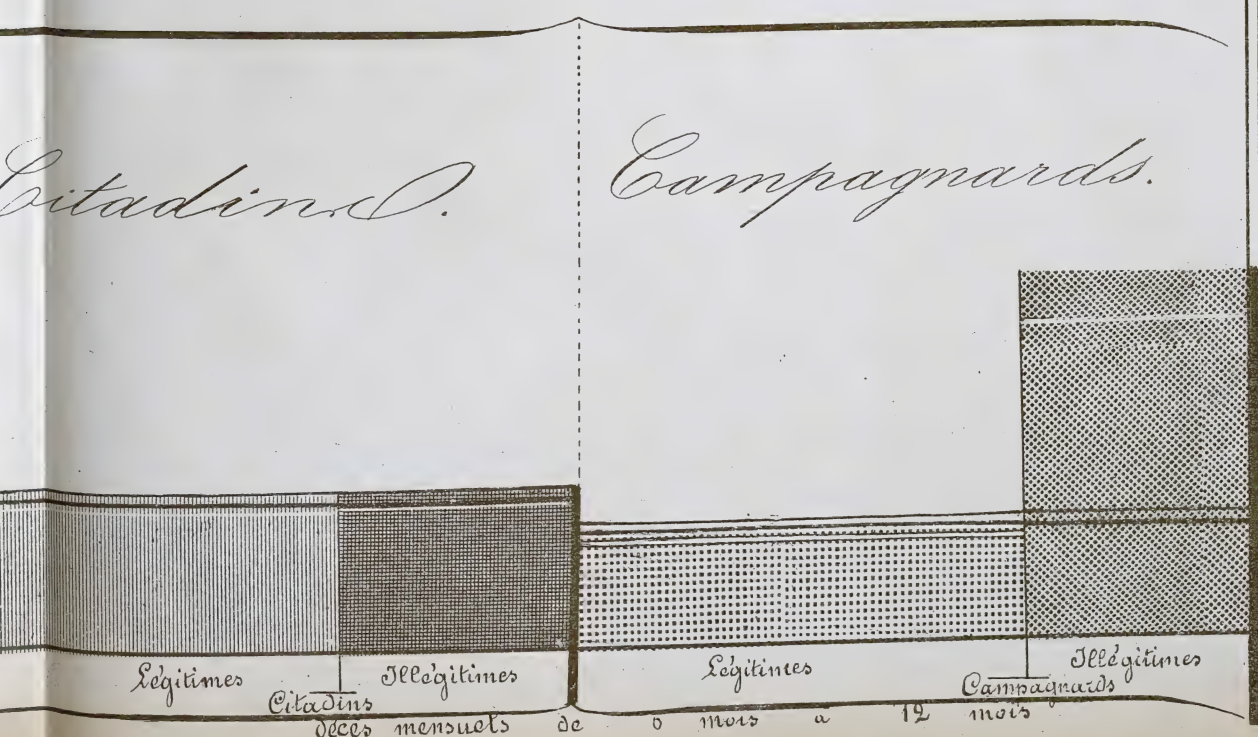 Citadins.
Campagnards.
Légitimes
Illégitimes
Citadins
Légitimes
Illégitimes
Campagnards
décès mensuels de 6 mois a 12 mois